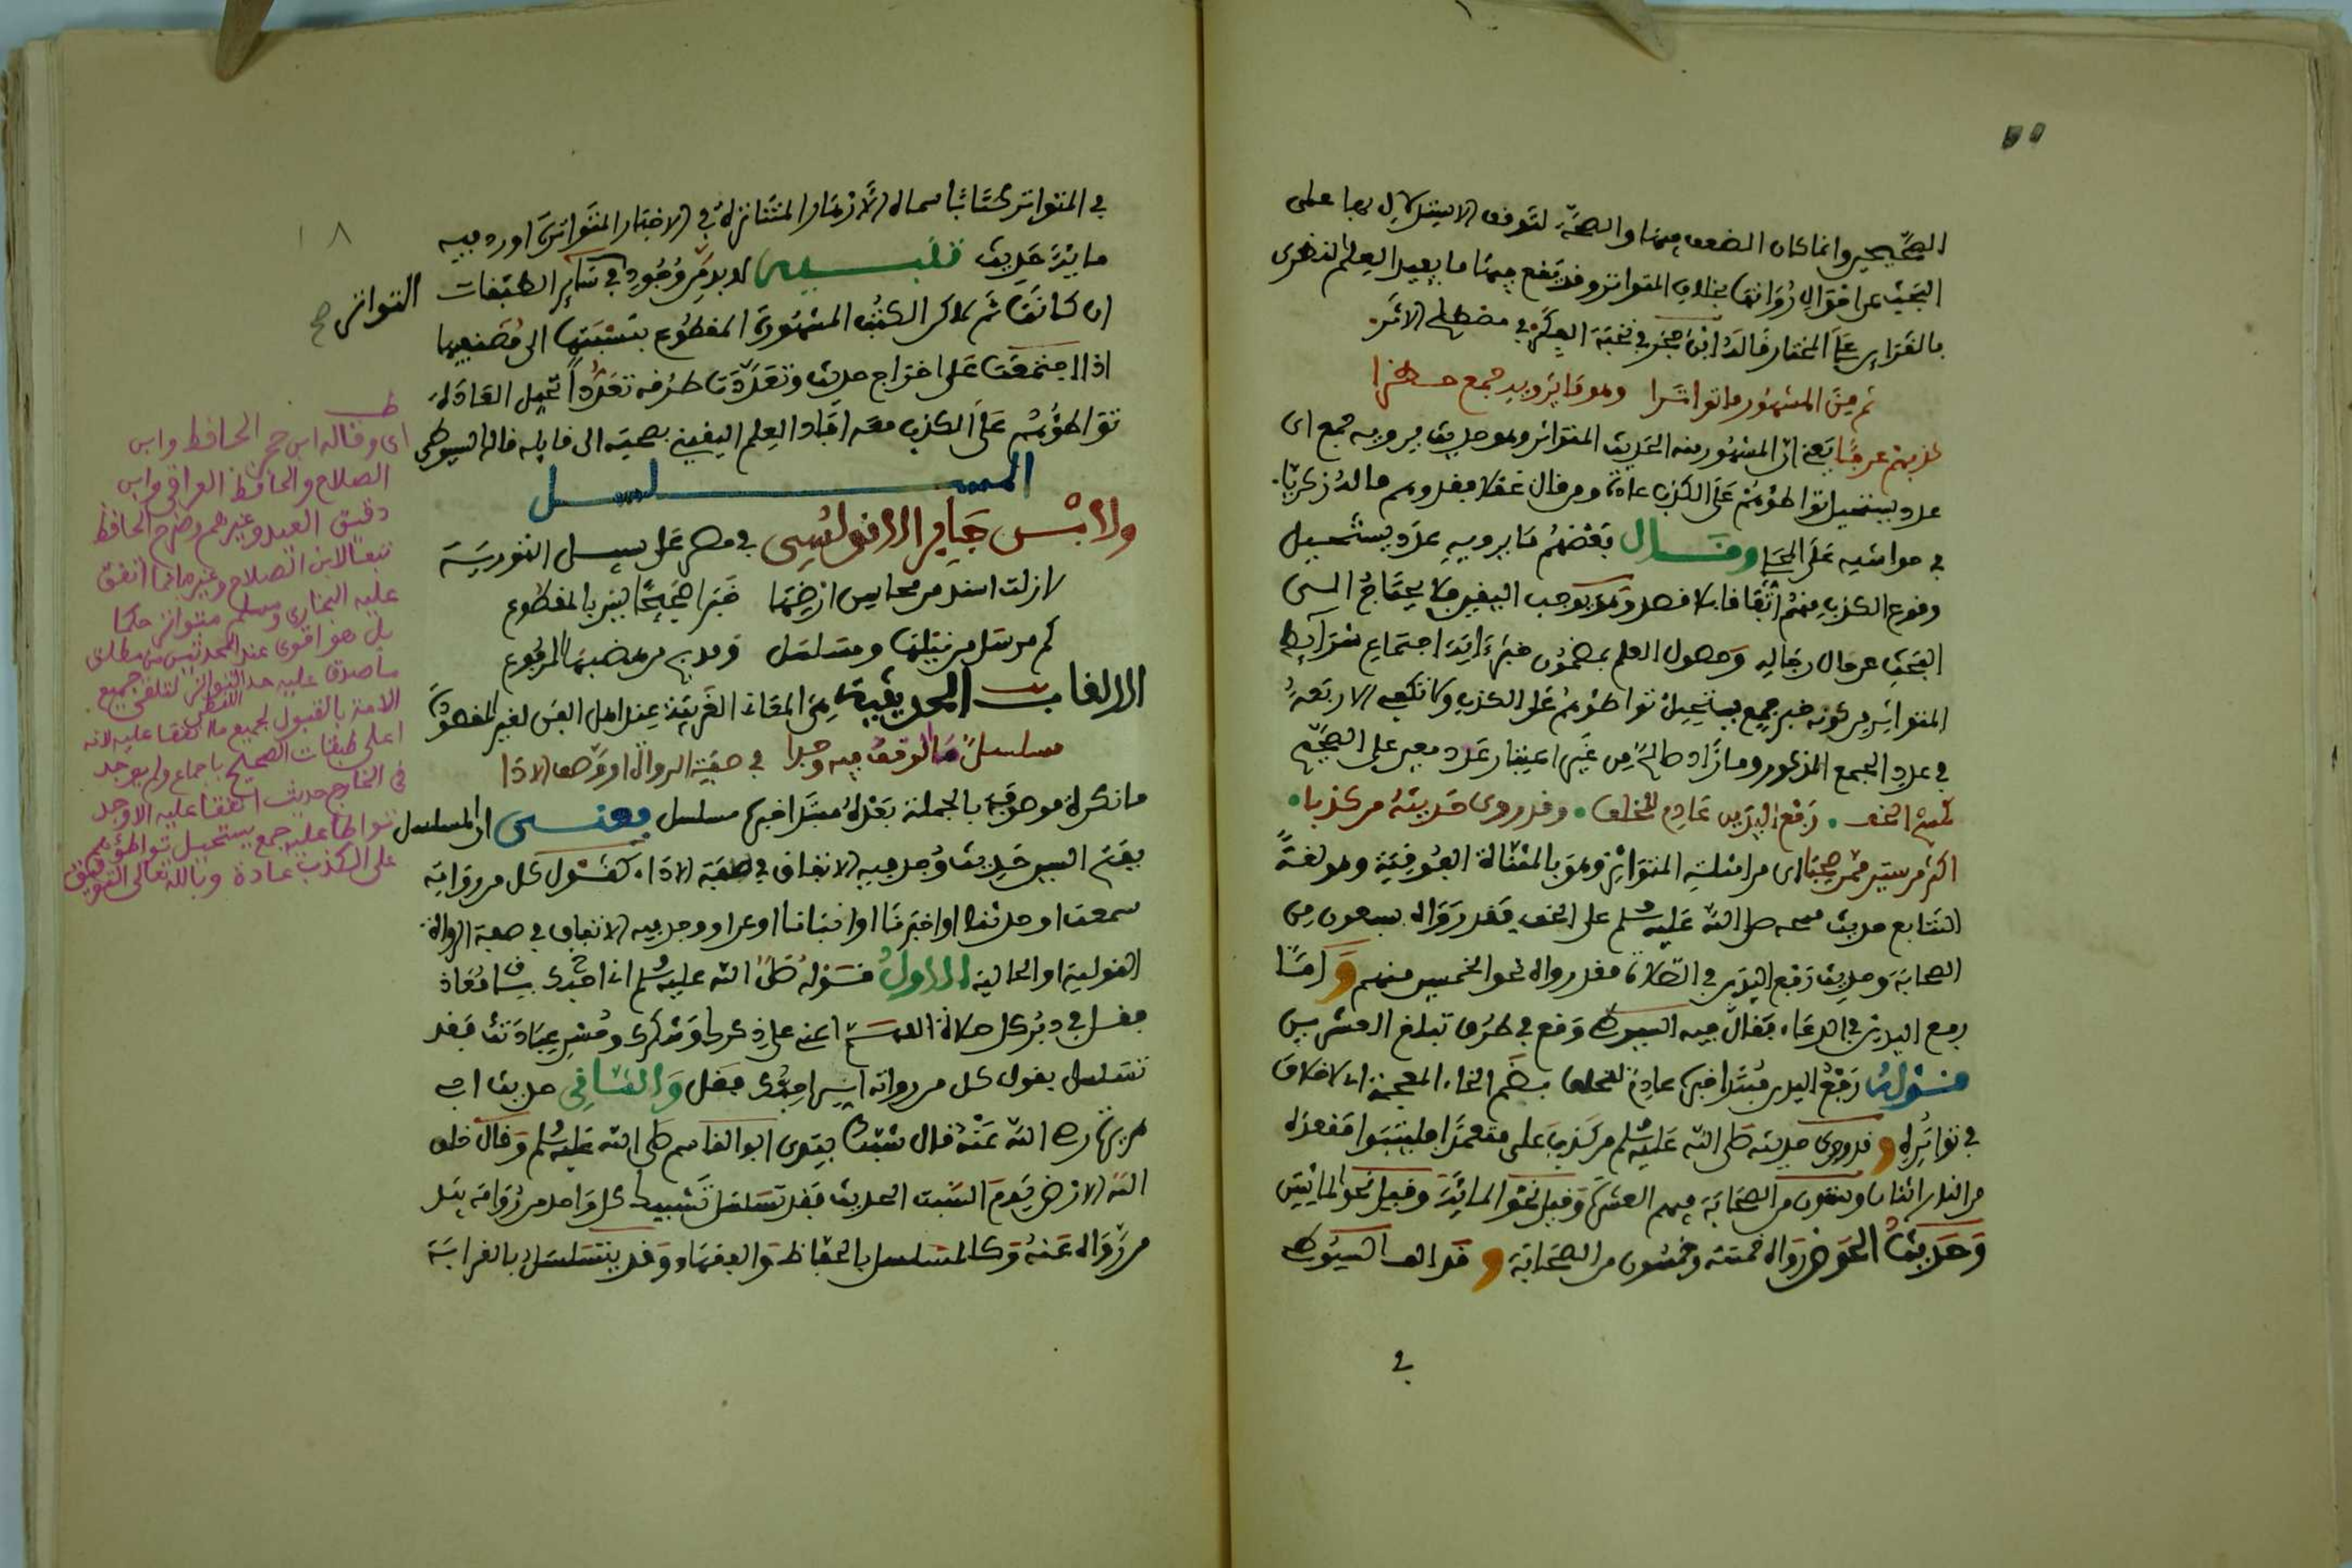 الصحيح وانما كان الضعف فيها والصحة لتوقف الاستدلال بها على
البحث عن احوال رواتها بخلاف المتواتر وقد يقع فيها ما يفيد العلم النظري
بالقرائن على المختار قاله ابن حجر في نخبة الفكر في مصطلح الاثر
ثم من المشهور ما تواترا وهو ما يرويه جمع حظرا
كذبهم عرفا يعني ان المشهور منه الحديث المتواتر وهو حديث يرويه جمع اي
عدد يستحيل تواطؤهم على الكذب عادة ومن قال عقلا فقد وهم قاله زكريا
في حواشيه على المحلى وقال بعضهم ما يرويه عدد يستحيل
وقوع الكذب منهم اتفاقا بلا قصد وهو يوجب اليقين فلا يحتاج الى
البحث عن حال رجاله وحصول العلم بمضمون خبر ءاية اجتماع شرايط
المتواتر من كونه خبر جمع يستحيل تواطؤهم على الكذب ولا تكفي الاربعة
في عدد الجمع المذكور وما زاد صالح من غير اعتبار عدد معين على الصحيح
كمسح الخف رفع اليدين عادم للخلف وقد روى حديثه من كذبا
اكثر من ستين ممن صحبا اي من امثلة المتواتر وهو بالمثناة الفوقية وهو لغة
التتابع حديث مسحه صلى الله عليه وسلم على الخف فقد رواه سبعون من
الصحابة وحديث رفع اليدين في الصلاة فقد رواه نحو الخمسين منهم واما
رفع اليدين في الدعاء فقال فيه السيوطي وقع في طرق تبلغ العشرين
قوله رفع اليدين مبتدا خبره عادم للخلف بضم الخاء المعجمة اي لا خلاف
في تواتره وقد روى حديثه صلى الله عليه وسلم من كذب علي متعمدا فليتبوا مقعده
من النار اثنان وستون من الصحابة فيهم العشرة وقيل نحو المائة وقيل نحو المائتين
وحديث الحوض رواه خمسة وخمسون من الصحابة وقد الف السيوطي
في
١٨
في المتواتر كتابا سماه الازهار المتناثرة في الاخبار المتواترة اورد فيه
مائة حديث تنبيه لا بد من وجود في سائر الطبقات
التواتر صح
ان كانت ثم ذكر الكتب المشهورة المقطوع بنسبتها الى مصنفيها
اذا اجتمعت على اخراج حديث وتعددت طرقه تعددا تحيل العادة
تواطؤهم على الكذب معه افاد العلم اليقيني بصحته الى قايله قاله السيوطي
المسلسل
ولابن جابر الاندلسي في مصر على سبيل التورية
لا زلت اسند من محاسن ارضها خبرا صحيحا ليس بالمقطوع
كم مرسل من نيلها ومسلسل ومدبج من هضبها المرفوع
الالقاب الحديثية من المعاني الغريبة عند اهل الفن لغير المقصود
مسلسل ما الوقف فيه وجدا في صفة الروال او وصف الادا
ما نكرة موصوفة بالجملة بعده مبتدا خبره مسلسل يعني ان المسلسل
بفتح السين حديث وجد فيه الاتفاق في صفة الاداء كقول كل من رواته
سمعت او حدثنا او اخبرنا او انبانا او عن او وجد فيه الاتفاق في صفة الرواة
القولية او الحالية الاول قوله صلى الله عليه وسلم اني احبك يا معاذ
فقل في دبر كل صلاة اللهم اعني على ذكرك وشكرك وحسن عبادتك فقد
تسلسل بقول كل من رواته اني احبك فقل والثاني حديث ابي
هريرة رضي الله عنه قال شبك بيدي ابو القاسم صلى الله عليه وسلم وقال خلق
الله الارض يوم السبت الحديث فقد تسلسل تشبيك كل واحد من رواته بيد
من رواه عنه وكالمسلسل بالحفاظ والفقهاء وقد يتسلسل بالقراءة
اي وقاله ابن حجر الحافظ وابن
الصلاح والحافظ العراقي وابن
دقيق العيد وغيرهم وصرح الحافظ
تبعا لابن الصلاح وغيره بان ما اتفق
عليه البخاري ومسلم متواتر حكما
بل هو اقوى عند المحدثين من مطلق
ما صدق عليه حد التواتر اللفظي لتلقي جميع
الامة بالقبول لجميع ما اتفقا عليه لانه
اعلى طبقات الصحيح باجماع ولم يوجد
في الخارج حديث اتفقا عليه الا وجد
تواطا عليه جمع يستحيل تواطؤهم
على الكذب عادة وبالله تعالى التوفيق